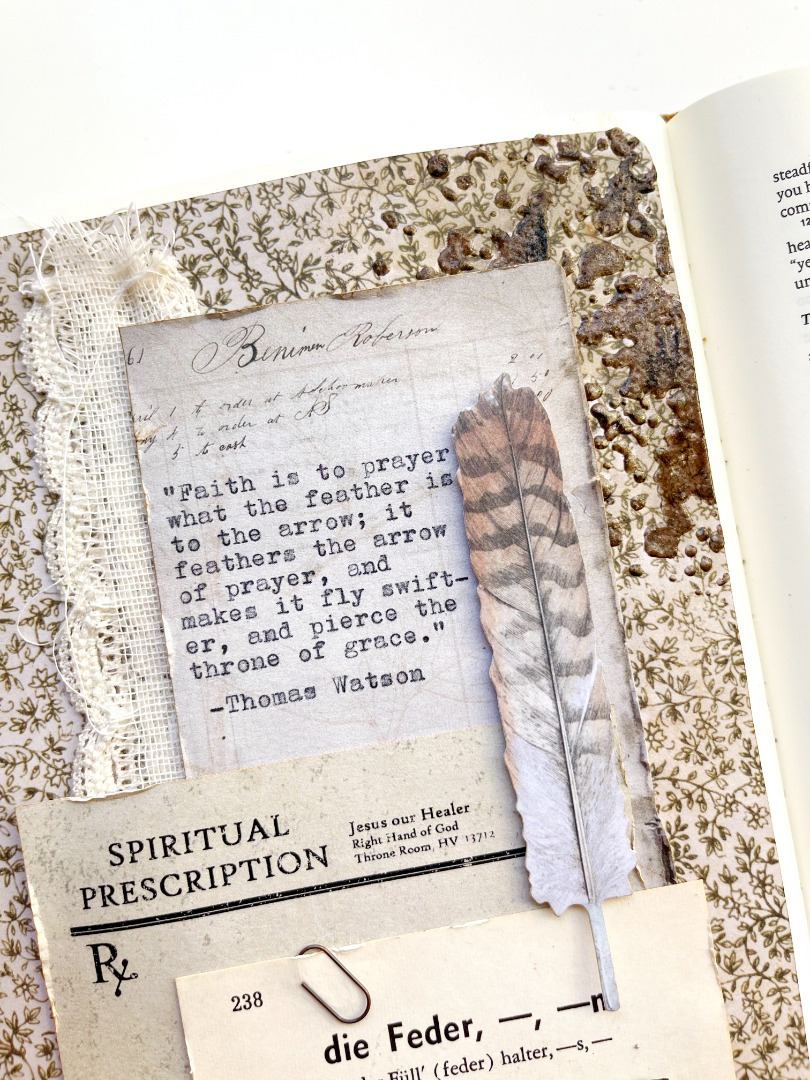 61
Benimen Roberson
1 to order at
to order at
5 to cash
"Faith is to prayer
what the feather is
to the arrow; it
feathers the arrow
of prayer, and
makes it fly swift-
er, and pierce the
throne of grace."
-Thomas Watson
SPIRITUAL
PRESCRIPTION
Jesus our Healer
Right Hand of God
Throne Room, HV 13712
Rx
238
die Feder, —, —n
Füll' (feder) halter, —s, —
steadf
you h
com
12
hea
"ye
un
T